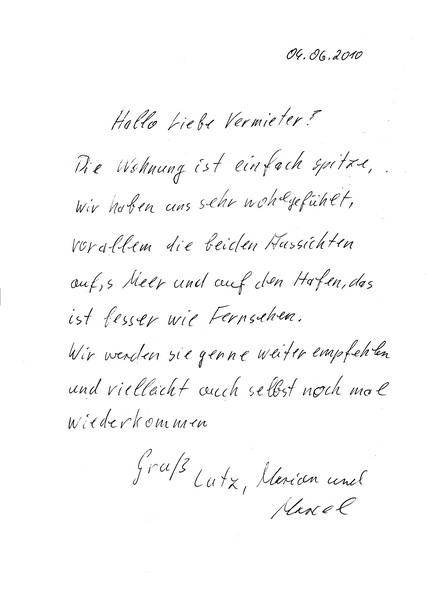 04.06.2010
Hallo Liebe Vermieter!
Die Wohnung ist einfach spitze,
wir haben uns sehr wohlgefühlt,
vorallem die beiden Aussichten
auf,s Meer und auf den Hafen, das
ist besser wie Fernsehen.
Wir werden sie gerne weiter empfehlen
und vielleicht auch selbst noch mal
wiederkommen
Gruß Lutz, Marian und
Marcel